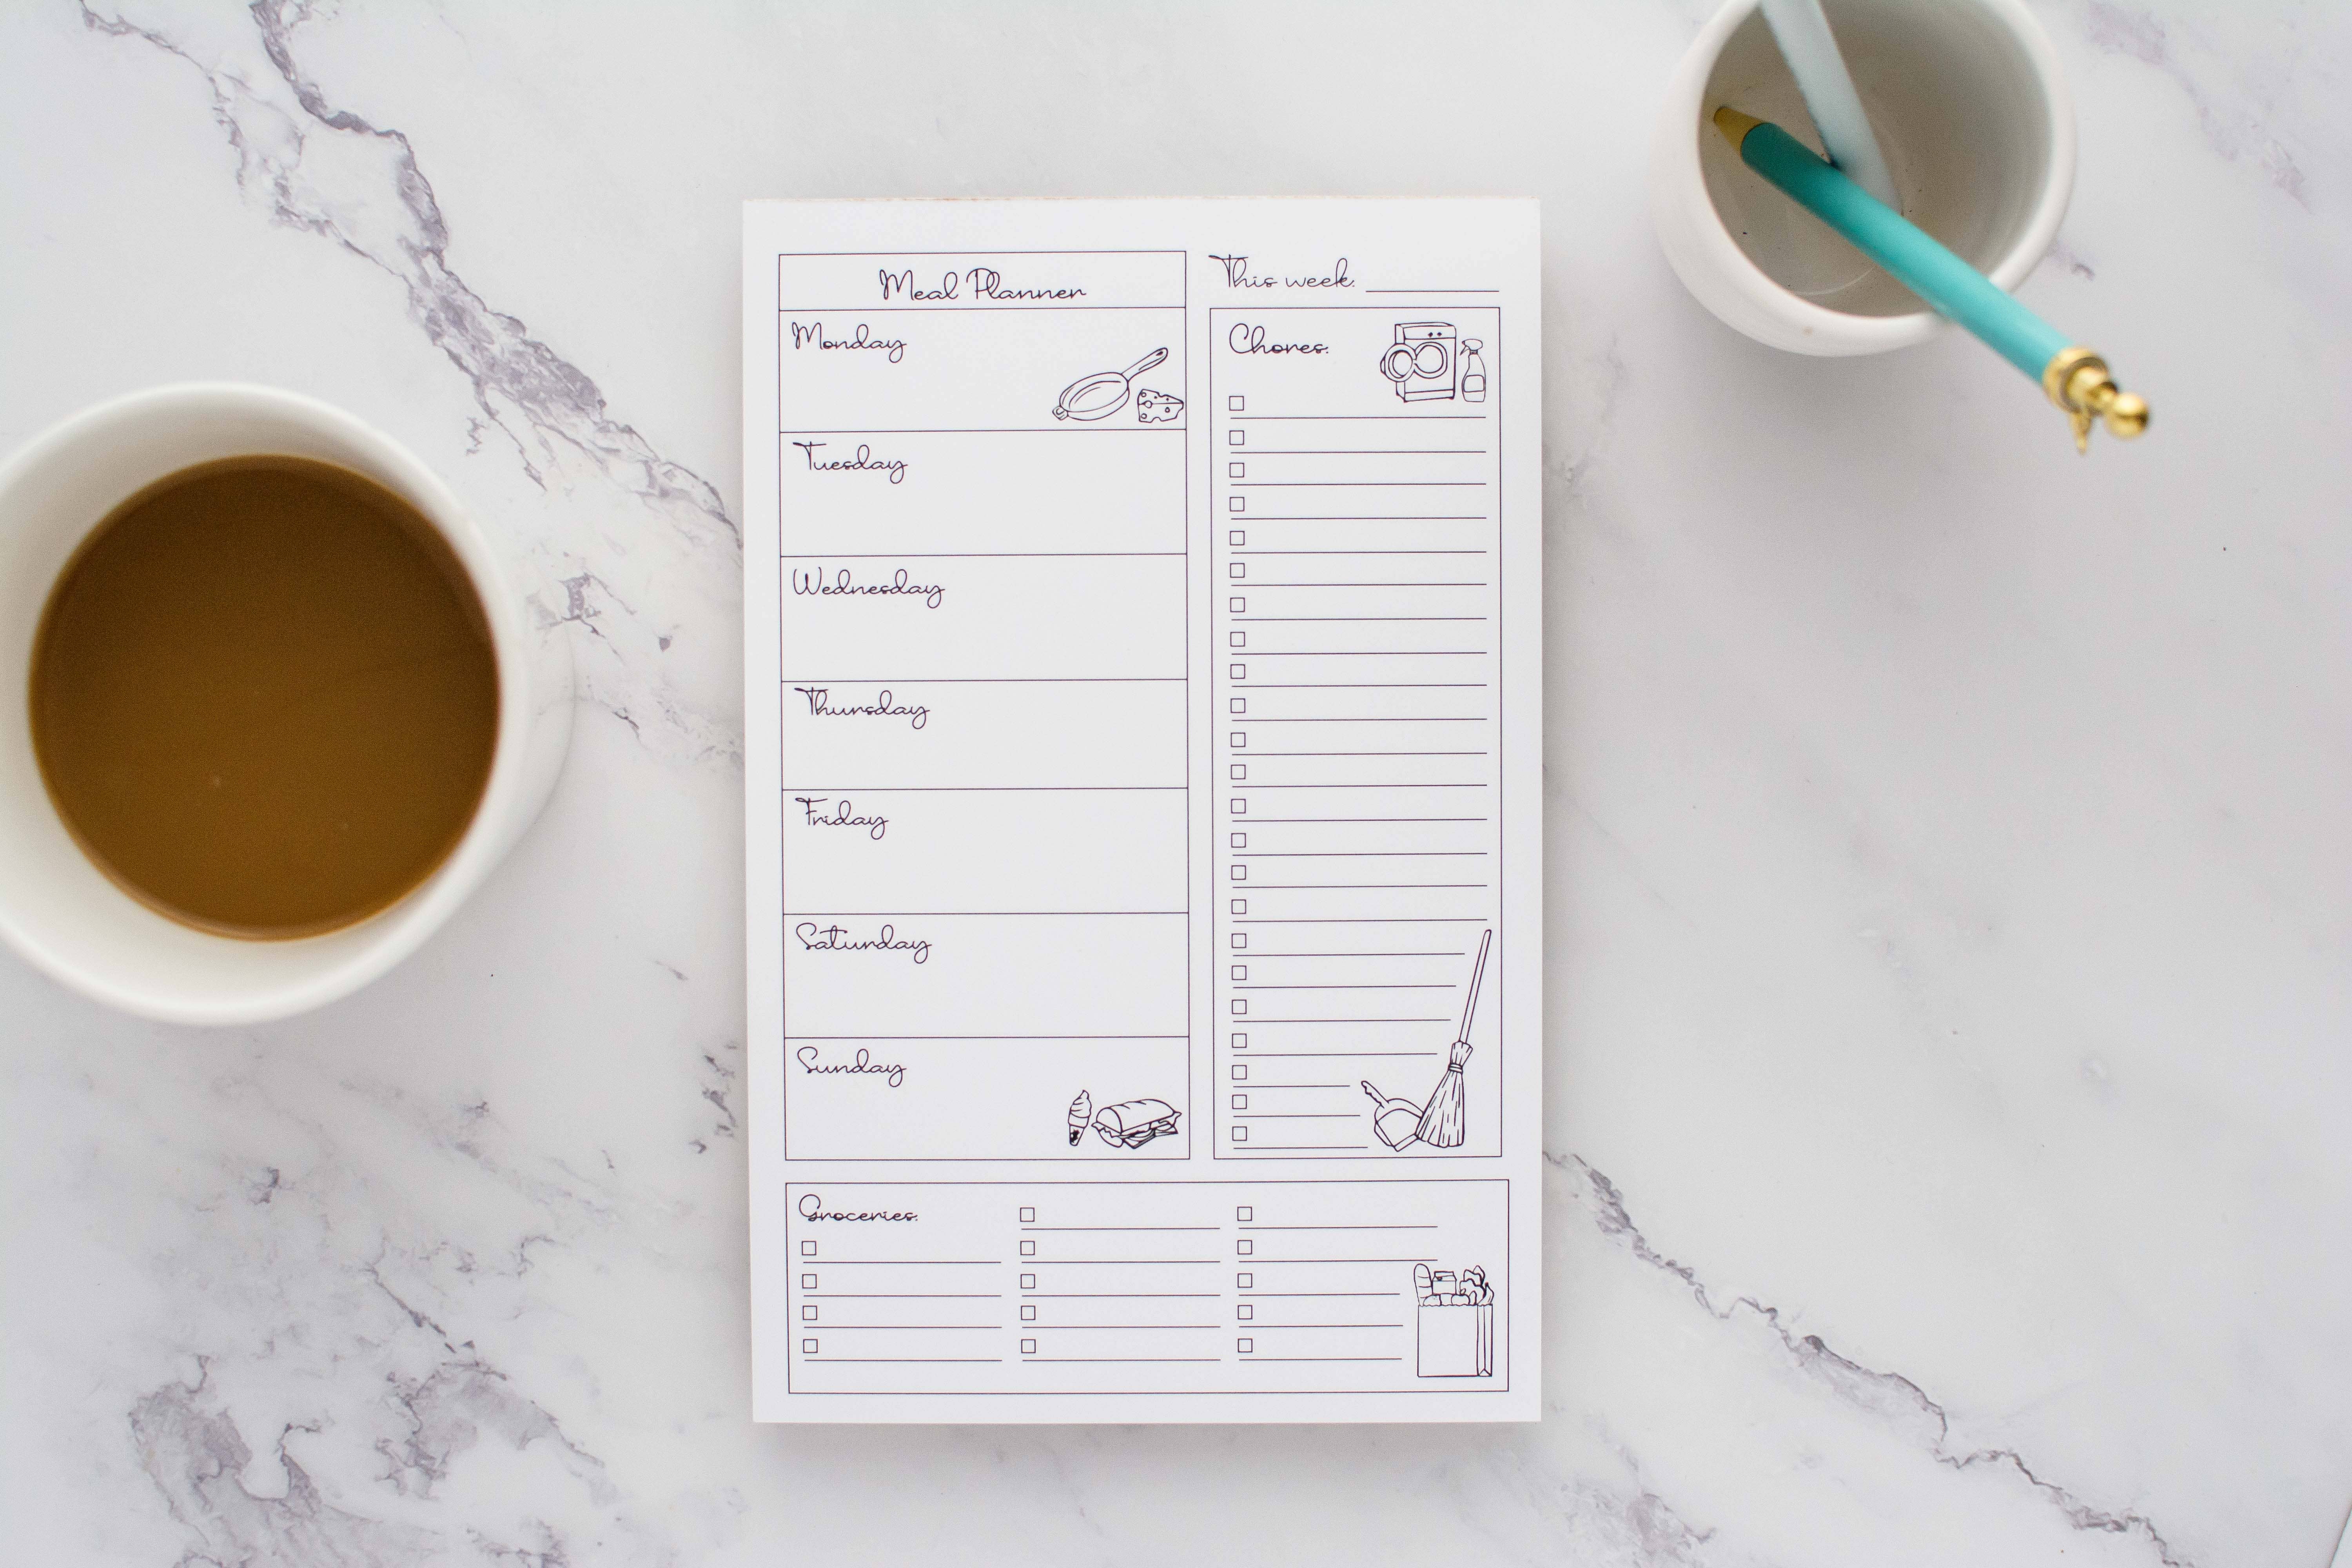 Meal Planner
Monday
Tuesday
Wednesday
Thursday
Friday
Saturday
Sunday
This week:
Chores:
Groceries: